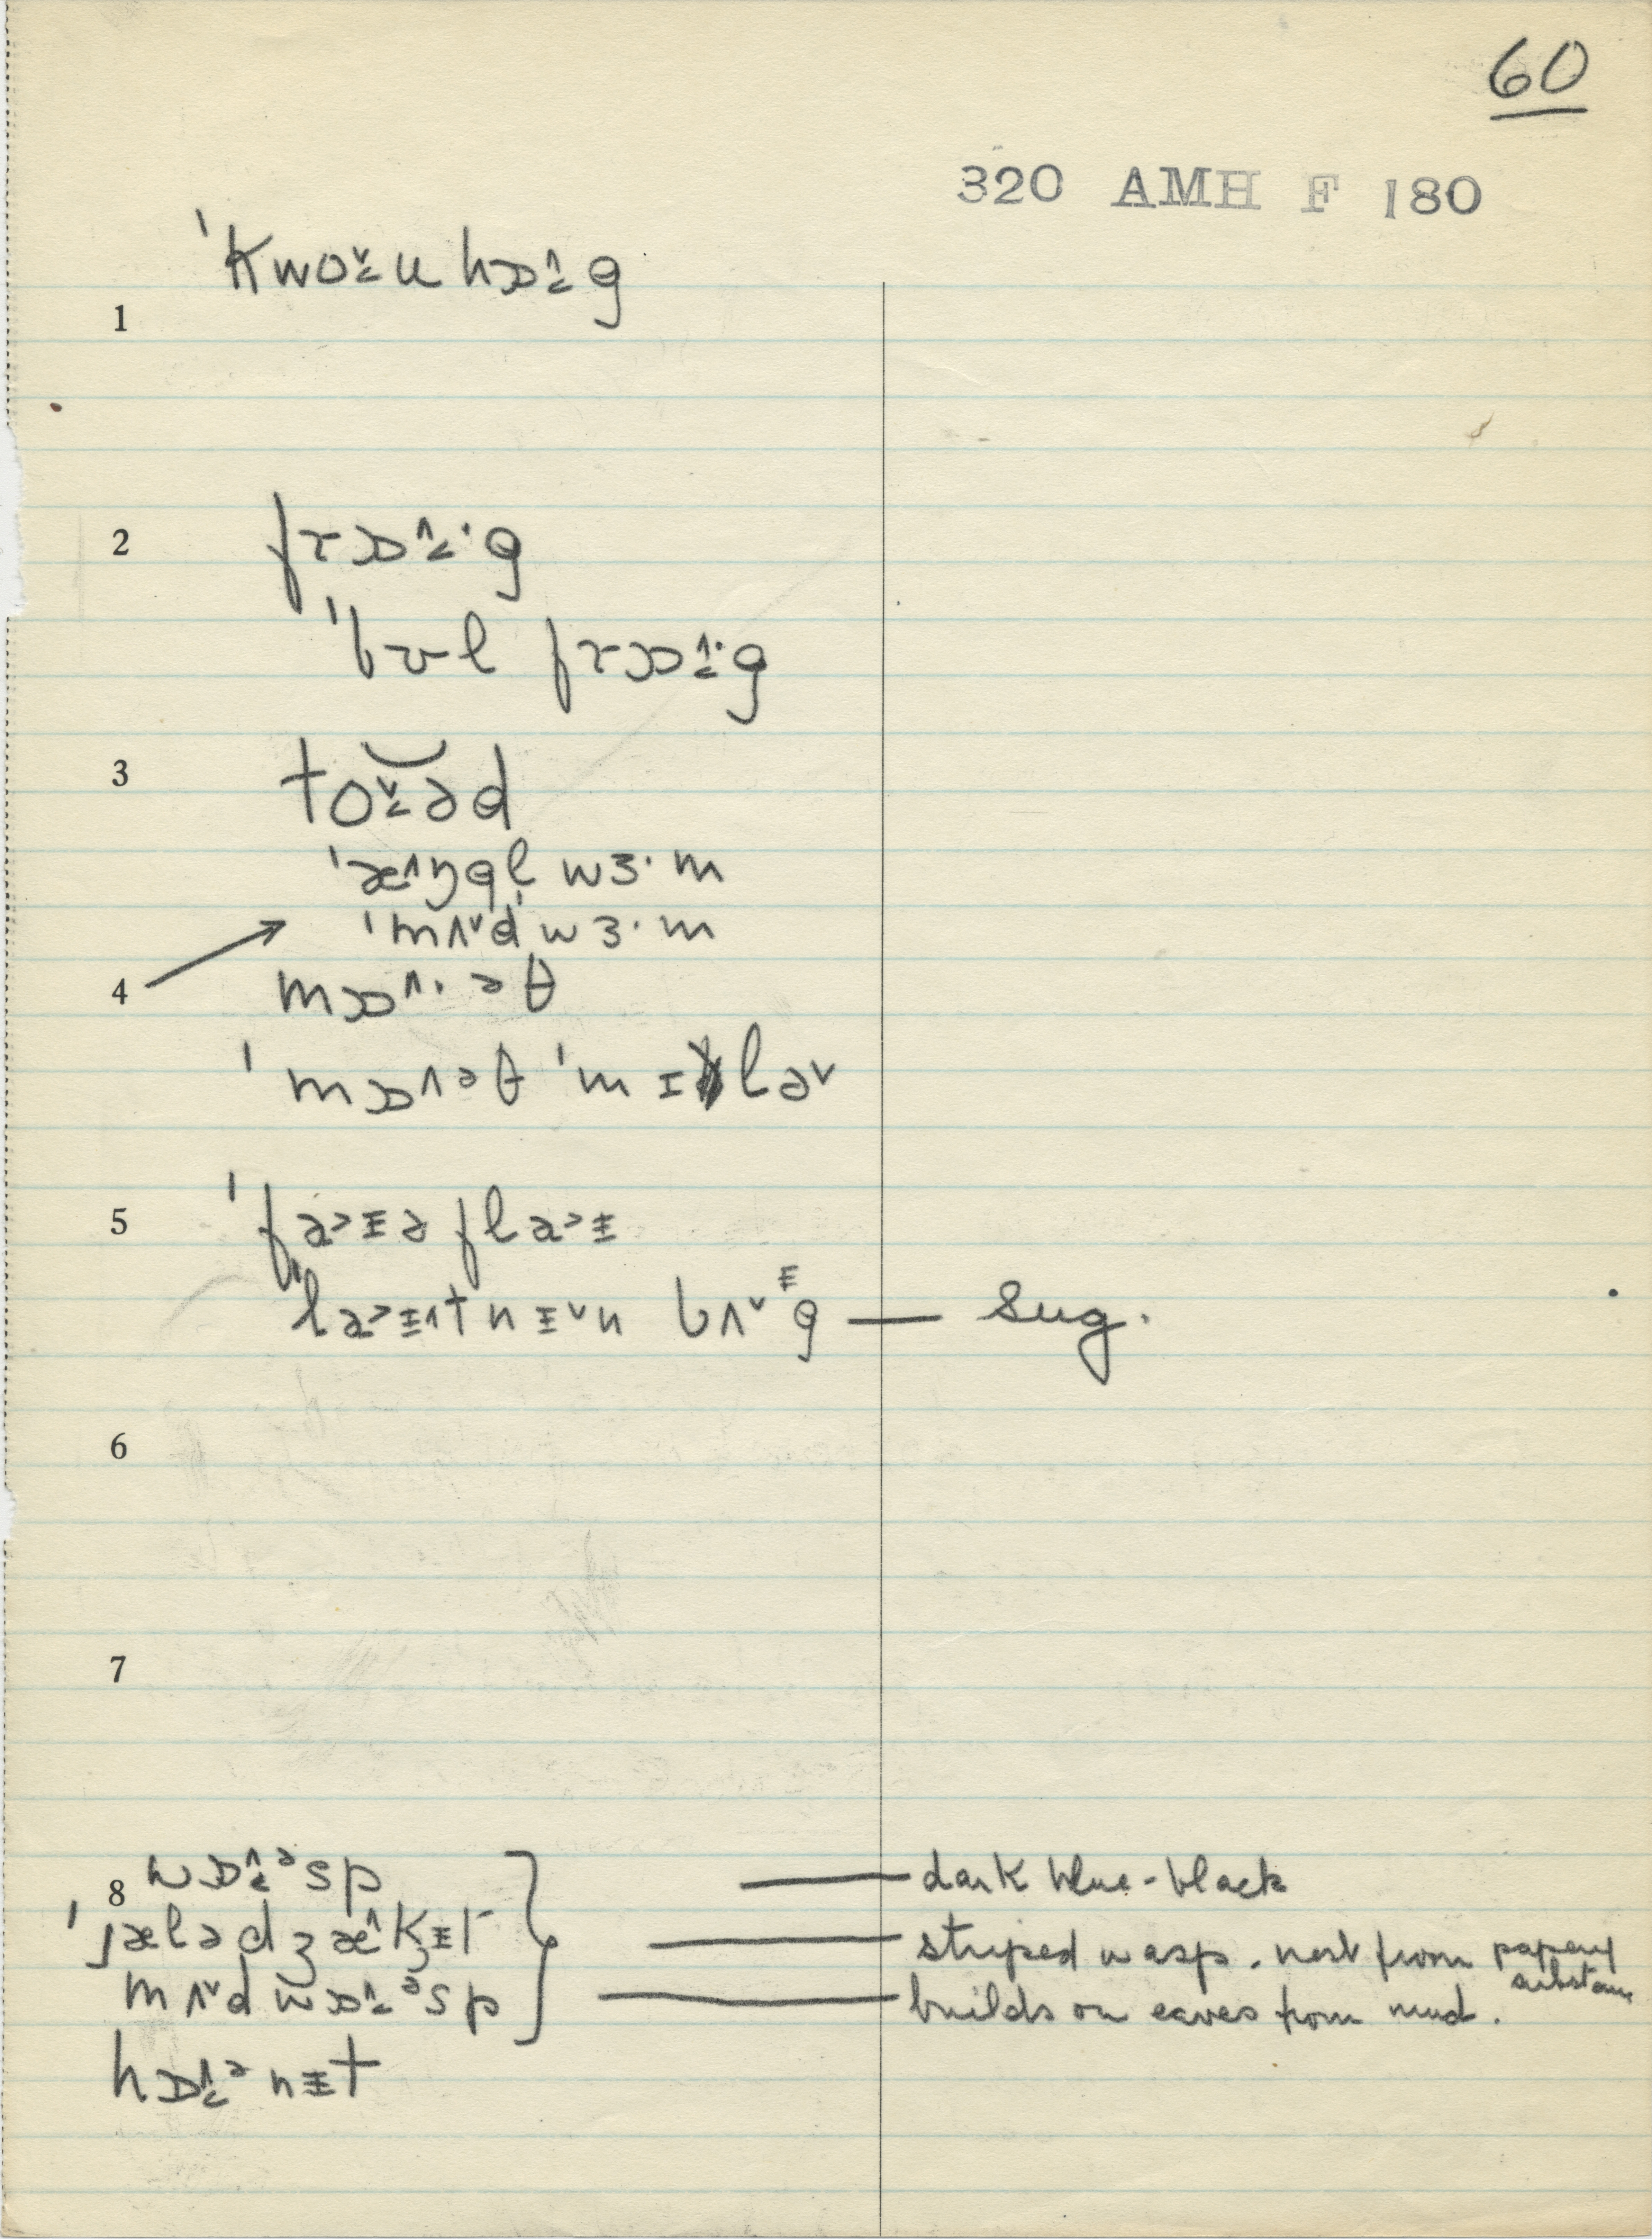 60
320 AMH F 180
1 ˈkwo˅˂u hɒ˄˂g
2 frɒ˄˂·g
ˈbʊl frɒ˄˂·g
3 to˅˂əd
ˈæ˄ŋgl̩ wɜ·m
ˈmʌ˅d wɜ·m
4 mɒ˄·əθ
ˈmɒ˄əθ ˈmɪlə˅
5 ˈfa˃ɪə fla˃ɪ
ˈla˃ɪ˄tnɪ˅n bʌ˅g — sug.
6
7
8 wɒ˄˂ᵊsp — dark blue-black
ˈjælə dʒæ˄kɪt — striped wasp. nest from papery substance
mʌ˅d wɒ˄˂ᵊsp — builds on eaves from mud.
hɒ˄˂ᵊnɪt